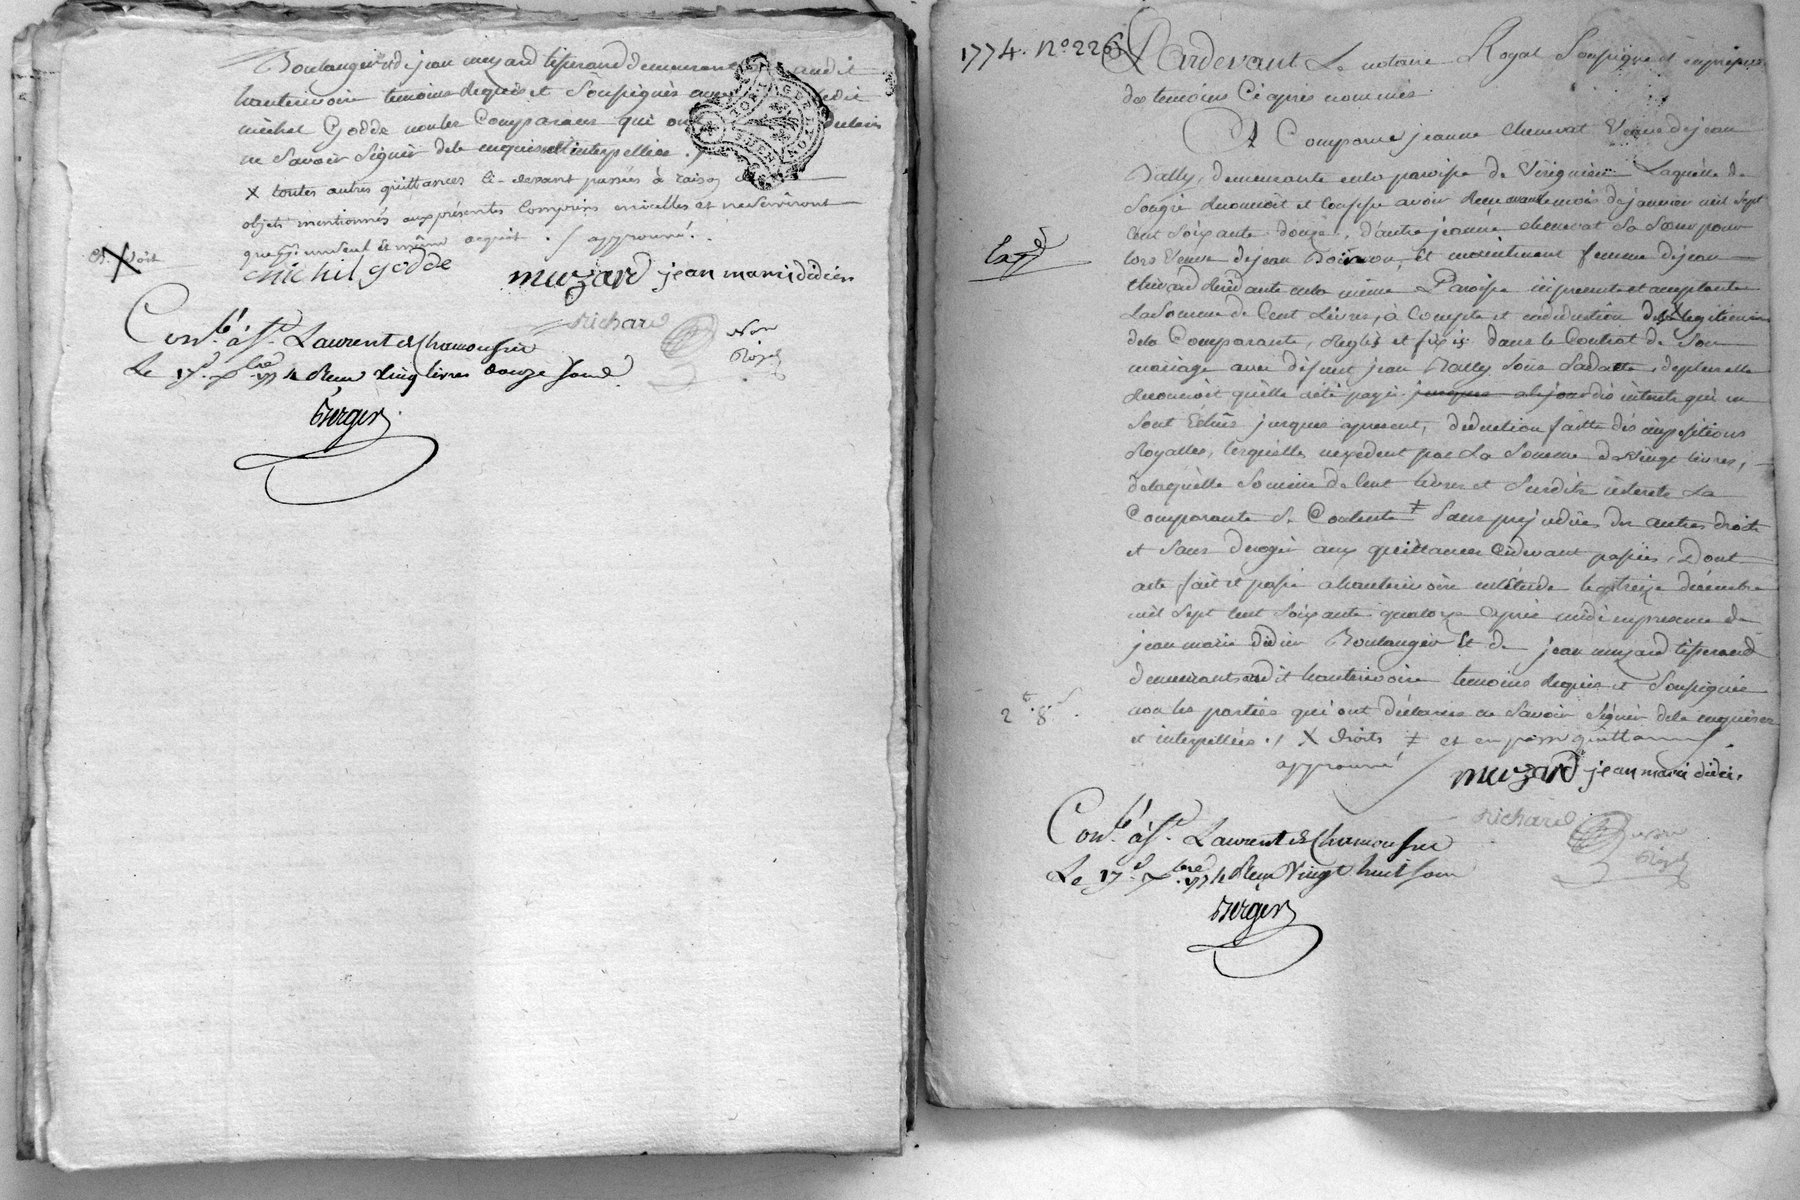 Boulanger et de jean muzard tisserand demeurant audit
hauterivoire temoins requis et Soussignés avec ledit
michel Godde non les Comparans qui ont
ne Savoir Signer de ce enquis et interpellés ./.
X toutes autres quittances ci-devant passées à raison
objets mentionnés aux présentes Comprises en icelles et ne Serviront
que d'un seul et même acquit ./ approuvé .
X Soit
michil godde
muzard jean marie didier
Richard
Non
Royal
Conlé. à St. Laurent de Chamousset
Le 17e. Xbre 1774 Reçu Vingt livres douze sous
Berger
1774. No 226
Pardevant Le notaire Royal Soussigné et en présence
des temoins Ci après nommés
A Comparue jeanne chenevat Veuve de jean
Bally, demeurante en la paroisse de Laquelle de
Son gré Reconnoit et Confesse avoir Reçu avant le mois de janvier mil Sept
Cent Soixante douze, d'autre jeanne chenevat Sa Soeur pour
lors Veuve de jean et maintenant femme de jean
Résidante en la même Paroisse ici presente et acceptante
La Somme de Cent Livres, à Compte et en déduction des légitimes
de la Comparante, Reglés et fixés dans le Contrat de Son
mariage avec défunt jean Bally Sous Sa datte, de plus elle
Reconnoit qu'elle a été payée jusques à ce jour des intérêts qui en
Sont Echus jusques apresent, déduction faitte des impositions
Royalles, lesquelles n'excedent pas La Somme de Vingt livres,
de laquelle Somme de Cent livres et Susdits intérêts La
Comparante Se Contente ≠ Sans préjudice des autres droits
et Sans deroger aux quittances cidevant passées, Dont
acte fait et passé a hauterivoire en l'étude le treize décembre
mil Sept Cent Soixante quatorze après midi en presence de
jean marie didier Boulanger et de jean muzard tisserand
demeurants audit hauterivoire temoins Requis et Soussignés
non les parties qui ont déclarées ne Savoir Signer de ce enquises
et interpellées ./ X droits ≠ et en passe quittance
approuvé
2 8
muzard jean marie didier
Richard
Royal
Conlé. à St. Laurent de Chamousset
Le 17e. Xbre 1774 Reçu Vingt huit sous
Berger